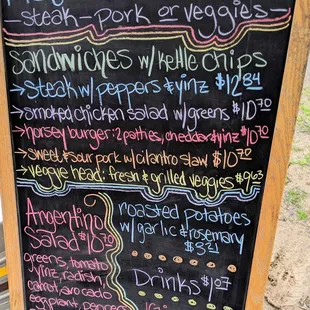 steak-pork or veggies
sandwiches w/ kettle chips
→steak w/ peppers & yinz $12.84
→smoked chicken salad w/ greens $10.70
→horsey burger: 2 patties, cheddar & yinz $10.70
→sweet & sour pork w/ cilantro slaw $10.70
→veggie head: fresh & grilled veggies $9.63
Argentine
Salad $10.70
greens, tomato
yinz, radish,
carrot, avocado
eggplant, peppers
roasted potatoes
w/ garlic & rosemary
$3.21
Drinks $1.07